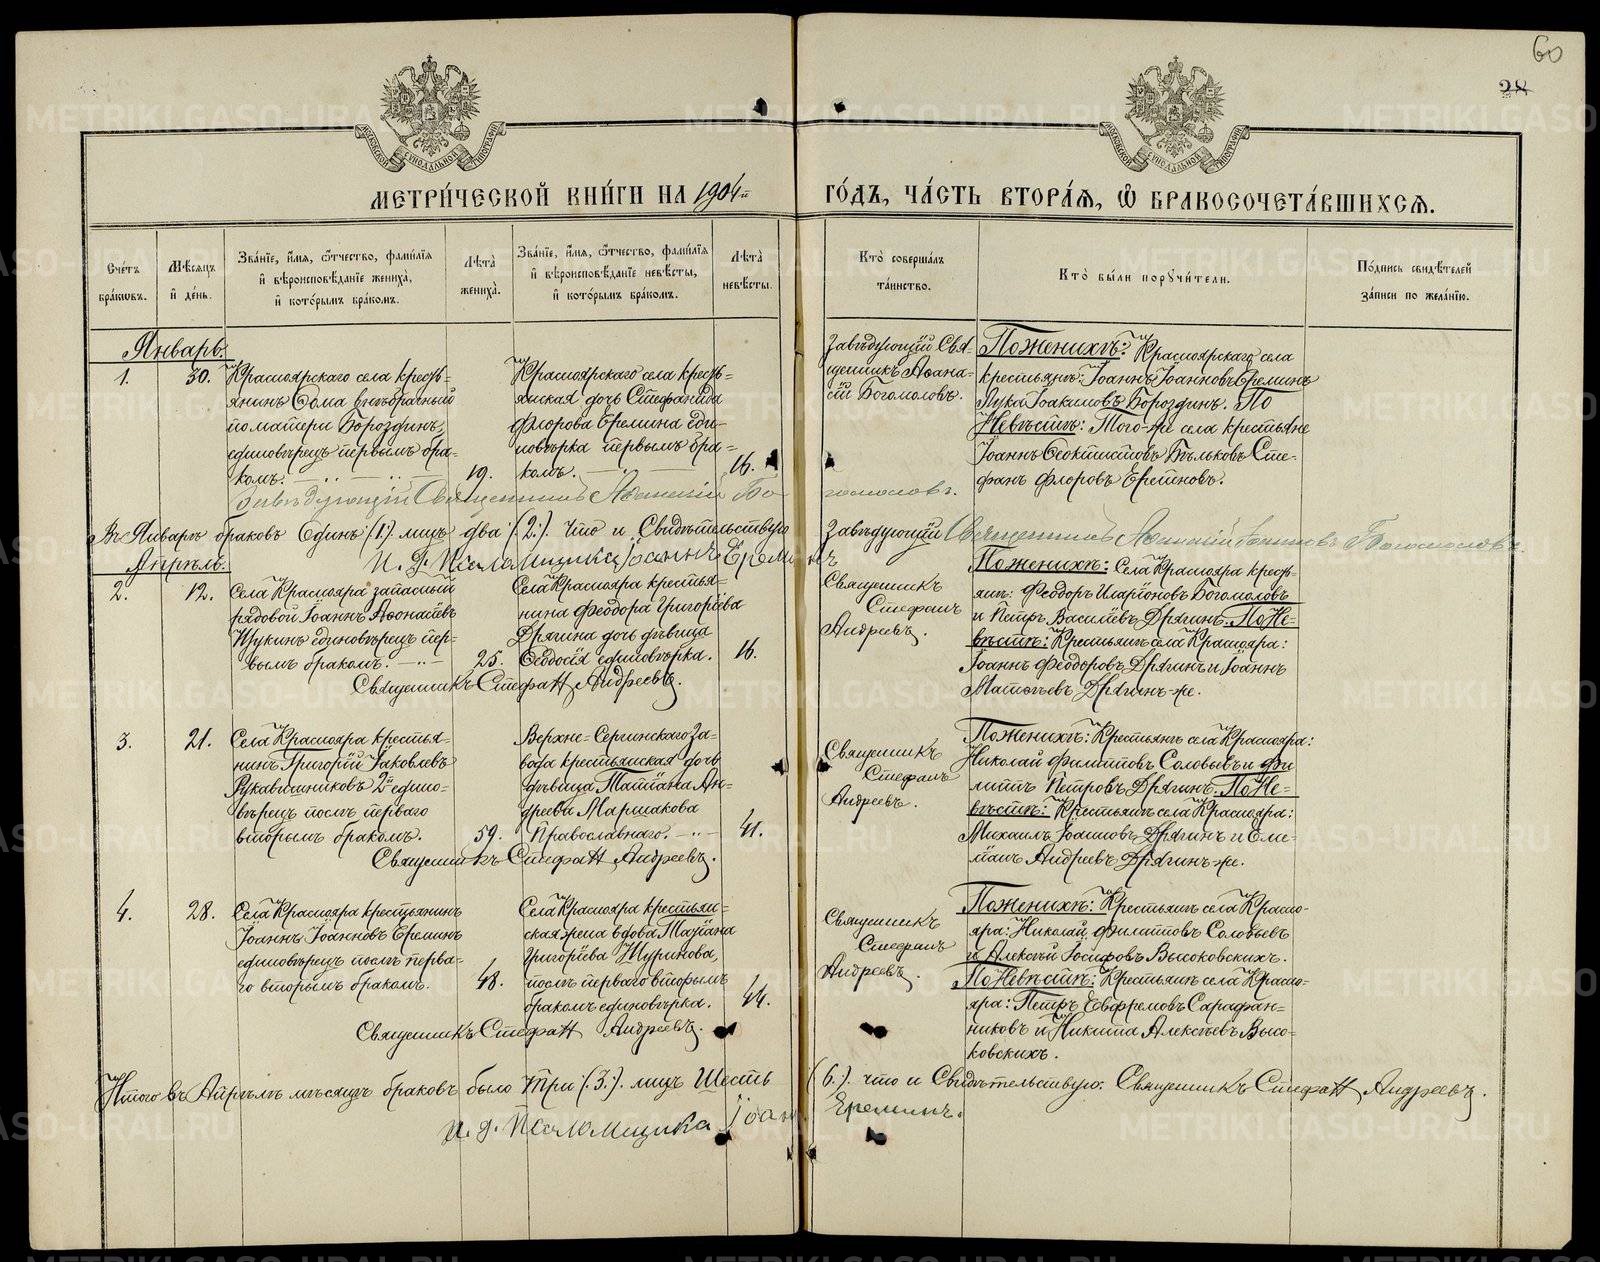 60
28
МЕТРИ́ЧЕСКОЙ КНИ́ГИ НА 1904й ГО́ДЪ, ЧА́СТЬ ВТОРА́Я, Ѽ БРАКОСОЧЕТА́ВШИХСЯ.
Сче́тъ
бра́ковъ.
Мѣ́сяцъ
и де́нь.
Зва́нїе, и́мя, ѻ҆́тчество, фами́лїя
и вѣроисповѣ́данїе жениха̀,
и кото́рымъ бра́комъ.
Лѣта̀
жениха̀.
Зва́нїе, и́мя, ѻ҆́тчество, фами́лїя
и вѣроисповѣ́данїе невѣ́сты,
и кото́рымъ бра́комъ.
Лѣта̀
невѣ́сты.
Кто̀ соверша́лъ
та́инство.
Кто̀ бы́ли поручи́тели.
По́дпись свидѣ́телей
за́писи по жела́нїю.
Январь.
1.
30.
Красноярскаго села кресть-
янинъ Ѳома внѣбрачный
по матери Бороздинъ,
единовѣрецъ первымъ бра-
комъ.
19.
Красноярскаго села кресть-
янская дочь Стефанида
Флорова Еремина еди-
новѣрка первымъ бра-
комъ.
16.
Завѣдующій Свя-
щенникъ Аѳана-
сій Богомоловъ.
По женихѣ: Красноярскаго села
крестьяне: Іоаннъ Іоанновъ Ереминъ
Лука Іоакимовъ Бороздинъ. По
Невѣстѣ: Того-же села крестьяне
Іоаннъ Ѳеоктистовъ Бѣльковъ Сте-
фанъ Флоровъ Ереминовъ.
Завѣдующій Священникъ Аѳанасій Богомоловъ.
Въ Январѣ браковъ Одинъ (1.) лицъ два (2.) что и Свидѣтельствую
Завѣдующій Священникъ Аѳанасій Іоанновъ Богомоловъ.
И. д. Псаломщика Іоаннъ Ереминъ
Апрѣль.
2.
12.
Села Краснояра запасный
рядовой Іоаннъ Аѳонасіевъ
Щукинъ единовѣрецъ пер-
вымъ бракомъ.
25.
Села Краснояра крестья-
нина Ѳеодора Григоріева
Дрягина дочь дѣвица
Ѳеодосія единовѣрка.
16.
Священникъ
Стефанъ
Андреевъ.
По женихѣ: Села Краснояра кресть-
яне: Ѳеодоръ Иларіоновъ Богомоловъ
и Петръ Василіевъ Дрягинъ. По Не-
вѣстѣ: Крестьяне села Краснояра:
Іоаннъ Ѳеодоровъ Дрягинъ и Іоаннъ
Матѳѣевъ Дрягинъ-же.
Священникъ Стефанъ Андреевъ.
3.
21.
Села Краснояра крестья-
нинъ Григорій Іаковлевъ
Рукавишниковъ 2й едино-
вѣрецъ послѣ перваго
вторымъ бракомъ.
59.
Верхне-Сергинскаго За-
вода крестьянская дочь
дѣвица Татіана Ан-
дреева Маршакова
Православнаго.
41.
Священникъ
Стефанъ
Андреевъ.
По женихѣ: Крестьяне села Краснояра:
Николай Филипповъ Соловьевъ и Фи-
липпъ Петровъ Дрягинъ. По Не-
вѣстѣ: Крестьяне села Краснояра:
Михаилъ Іоанновъ Дрягинъ и Еме-
ліанъ Андреевъ Дрягинъ-же.
Священникъ Стефанъ Андреевъ.
4.
28.
Села Краснояра крестьянинъ
Іоаннъ Іоанновъ Ереминъ
единовѣрецъ послѣ перва-
го вторымъ бракомъ.
48.
Села Краснояра крестьян-
ская жена вдова Татіана
Григоріева
послѣ перваго вторымъ
бракомъ единовѣрка.
44.
Священникъ
Стефанъ
Андреевъ.
По женихѣ: Крестьяне села Красно-
яра: Николай Филипповъ Соловьевъ
и Алексѣй Іосифовъ Высоковскихъ.
По Невѣстѣ: Крестьяне села Красно-
яра: Петръ Евфремовъ Сарафан-
никовъ и Никита Алексѣевъ Высо-
ковскихъ.
Священникъ Стефанъ Андреевъ.
Итого въ Апрѣлѣ мѣсяцѣ браковъ было три (3.) лицъ Шесть (6.) что и Свидѣтельствую: Священникъ Стефанъ Андреевъ.
и. д. Псаломщика Іоаннъ Ереминъ.